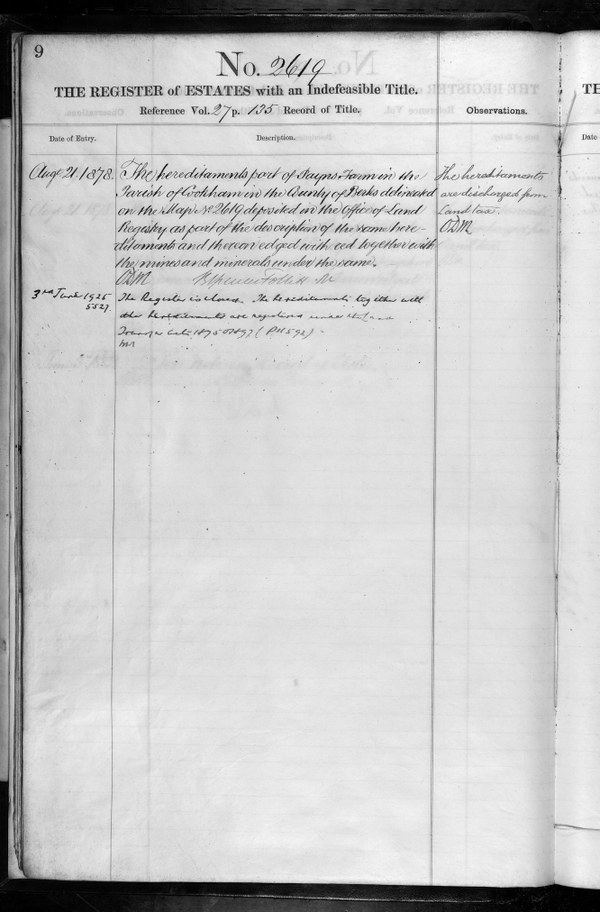 9
No. 2619
THE REGISTER of ESTATES with an Indefeasible Title.
Reference Vol. 27 p. 135 Record of Title.
Observations.
Date of Entry.
Description.
Augt 21 1878.
The hereditaments part of Farm in the
Parish of Cookham in the County of Berks delineated
on the Map No 2619 deposited in the Office of Land
Registry as part of the description of the same here-
ditaments and thereon edged with red together with
the mines and minerals under the same.
ODM
The hereditaments
are discharged from
Land tax.
ODM
3rd June 1925
5527.
The Register is closed. The hereditaments together with
other hereditaments are registered under the Land
Transfer Acts 1875 & 1897
TH
Date